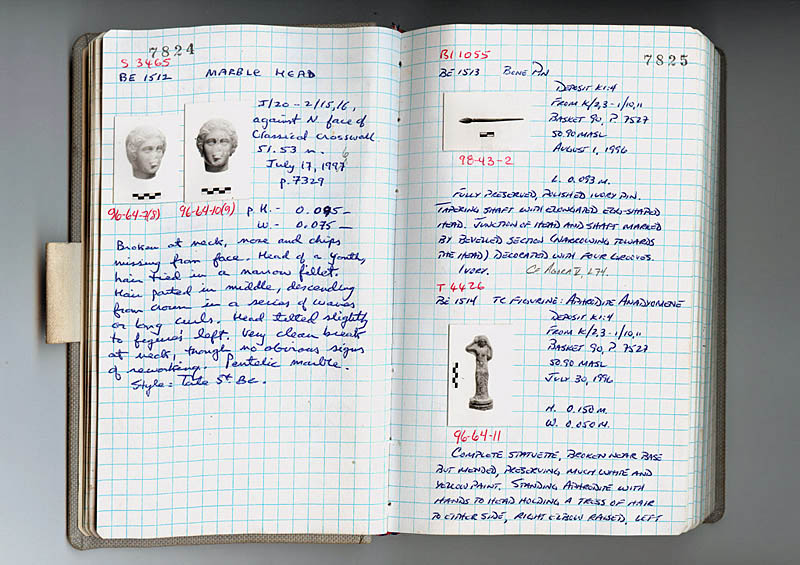 7824
S 3465
BE 1512 MARBLE HEAD
J/20 - 2/15,16,
against N face of
Classical Crosswall.
51.53 m.
July 17, 1997 6
p. 7329
96-64-7(8) 96-64-10(9)
p. H. - 0.095 -
W. - 0.075 -
Broken at neck, nose and chips
missing from face. Head of a youth,
hair tied in a narrow fillet.
Hair parted in middle, descending
from crown in a series of waves
or long curls. Head tilted slightly
to figures left. Very clean break
at neck, though no obvious signs
of reworking. Pentelic marble.
Style: Late 5th BC.
7825
BI 1055
BE 1513 BONE PIN
DEPOSIT K1:4
FROM K/2,3-1/10,11
BASKET 90, P. 7527
50.90 MASL
AUGUST 1, 1996
98-43-2
L. 0.093 M.
FULLY PRESERVED, POLISHED IVORY PIN.
TAPERING SHAFT WITH ELONGATED EGG-SHAPED
HEAD. JUNCTION OF HEAD AND SHAFT MARKED
BY BEVELLED SECTION (NARROWING TOWARDS
THE HEAD) DECORATED WITH FOUR GROOVES.
IVORY. Cf AGORA V, L74.
T 4426
BE 1514 TC FIGURINE: APHRODITE ANADYOMENE
DEPOSIT K1:4
FROM K/2,3-1/10,11
BASKET 90, P. 7527
50.90 MASL
JULY 30, 1996
H. 0.150 M.
W. 0.050 M.
96-64-11
COMPLETE STATUETTE, BROKEN NEAR BASE
BUT MENDED, PRESERVING MUCH WHITE AND
YELLOW PAINT. STANDING APHRODITE WITH
HANDS TO HEAD HOLDING A TRESS OF HAIR
TO EITHER SIDE, RIGHT ELBOW RAISED, LEFT